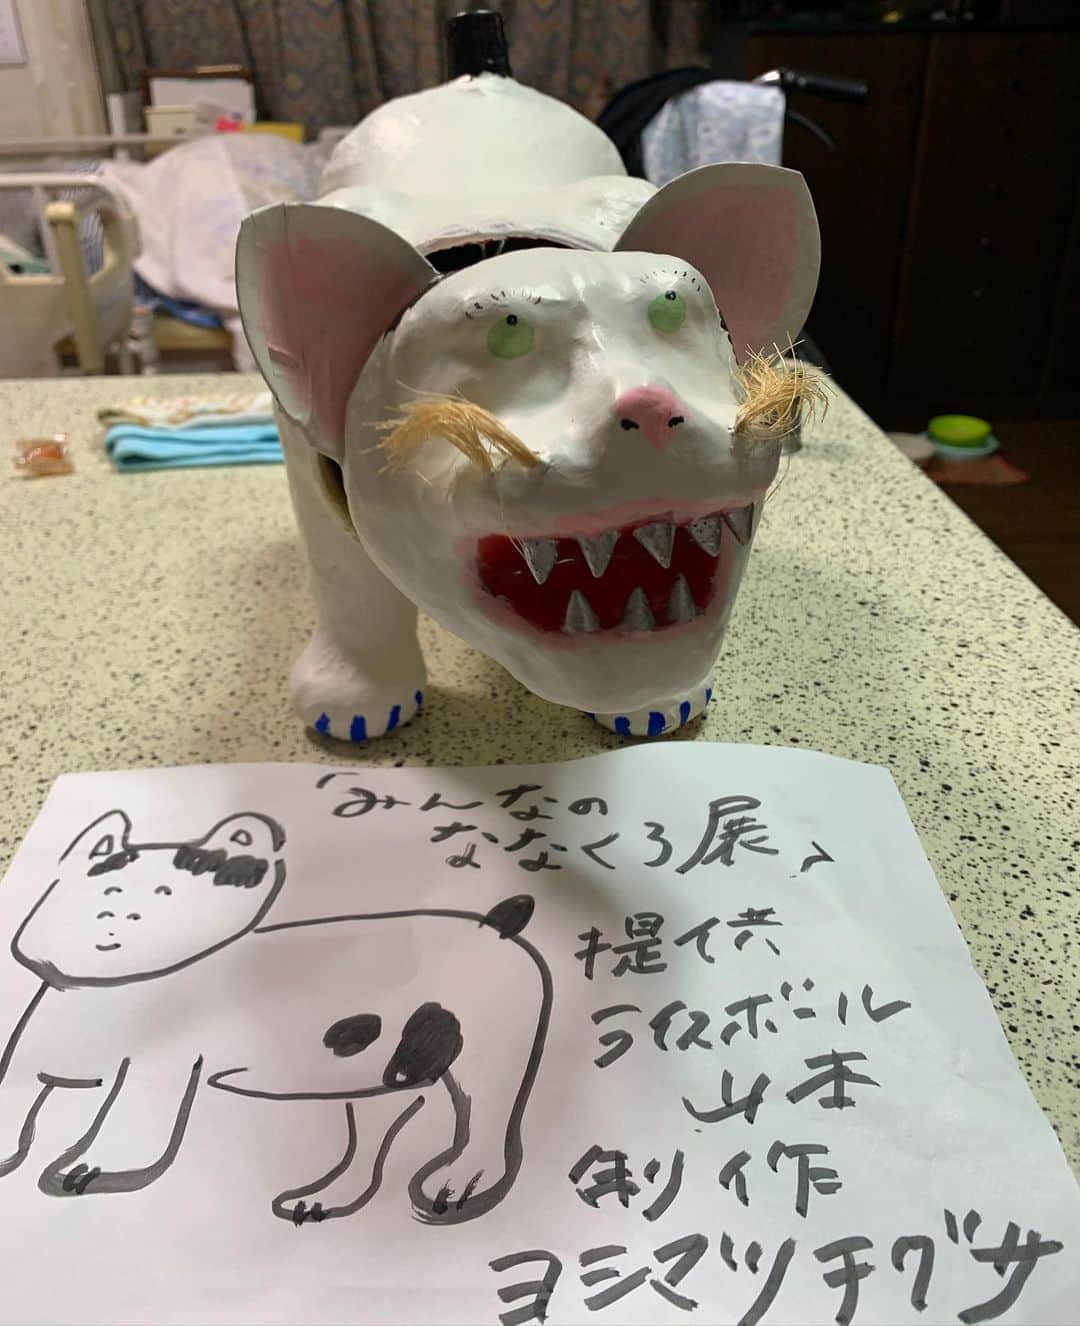 「みんなの
ななくろ展」
提供
ライスボール
山本
制作
ヨシマツチグサ